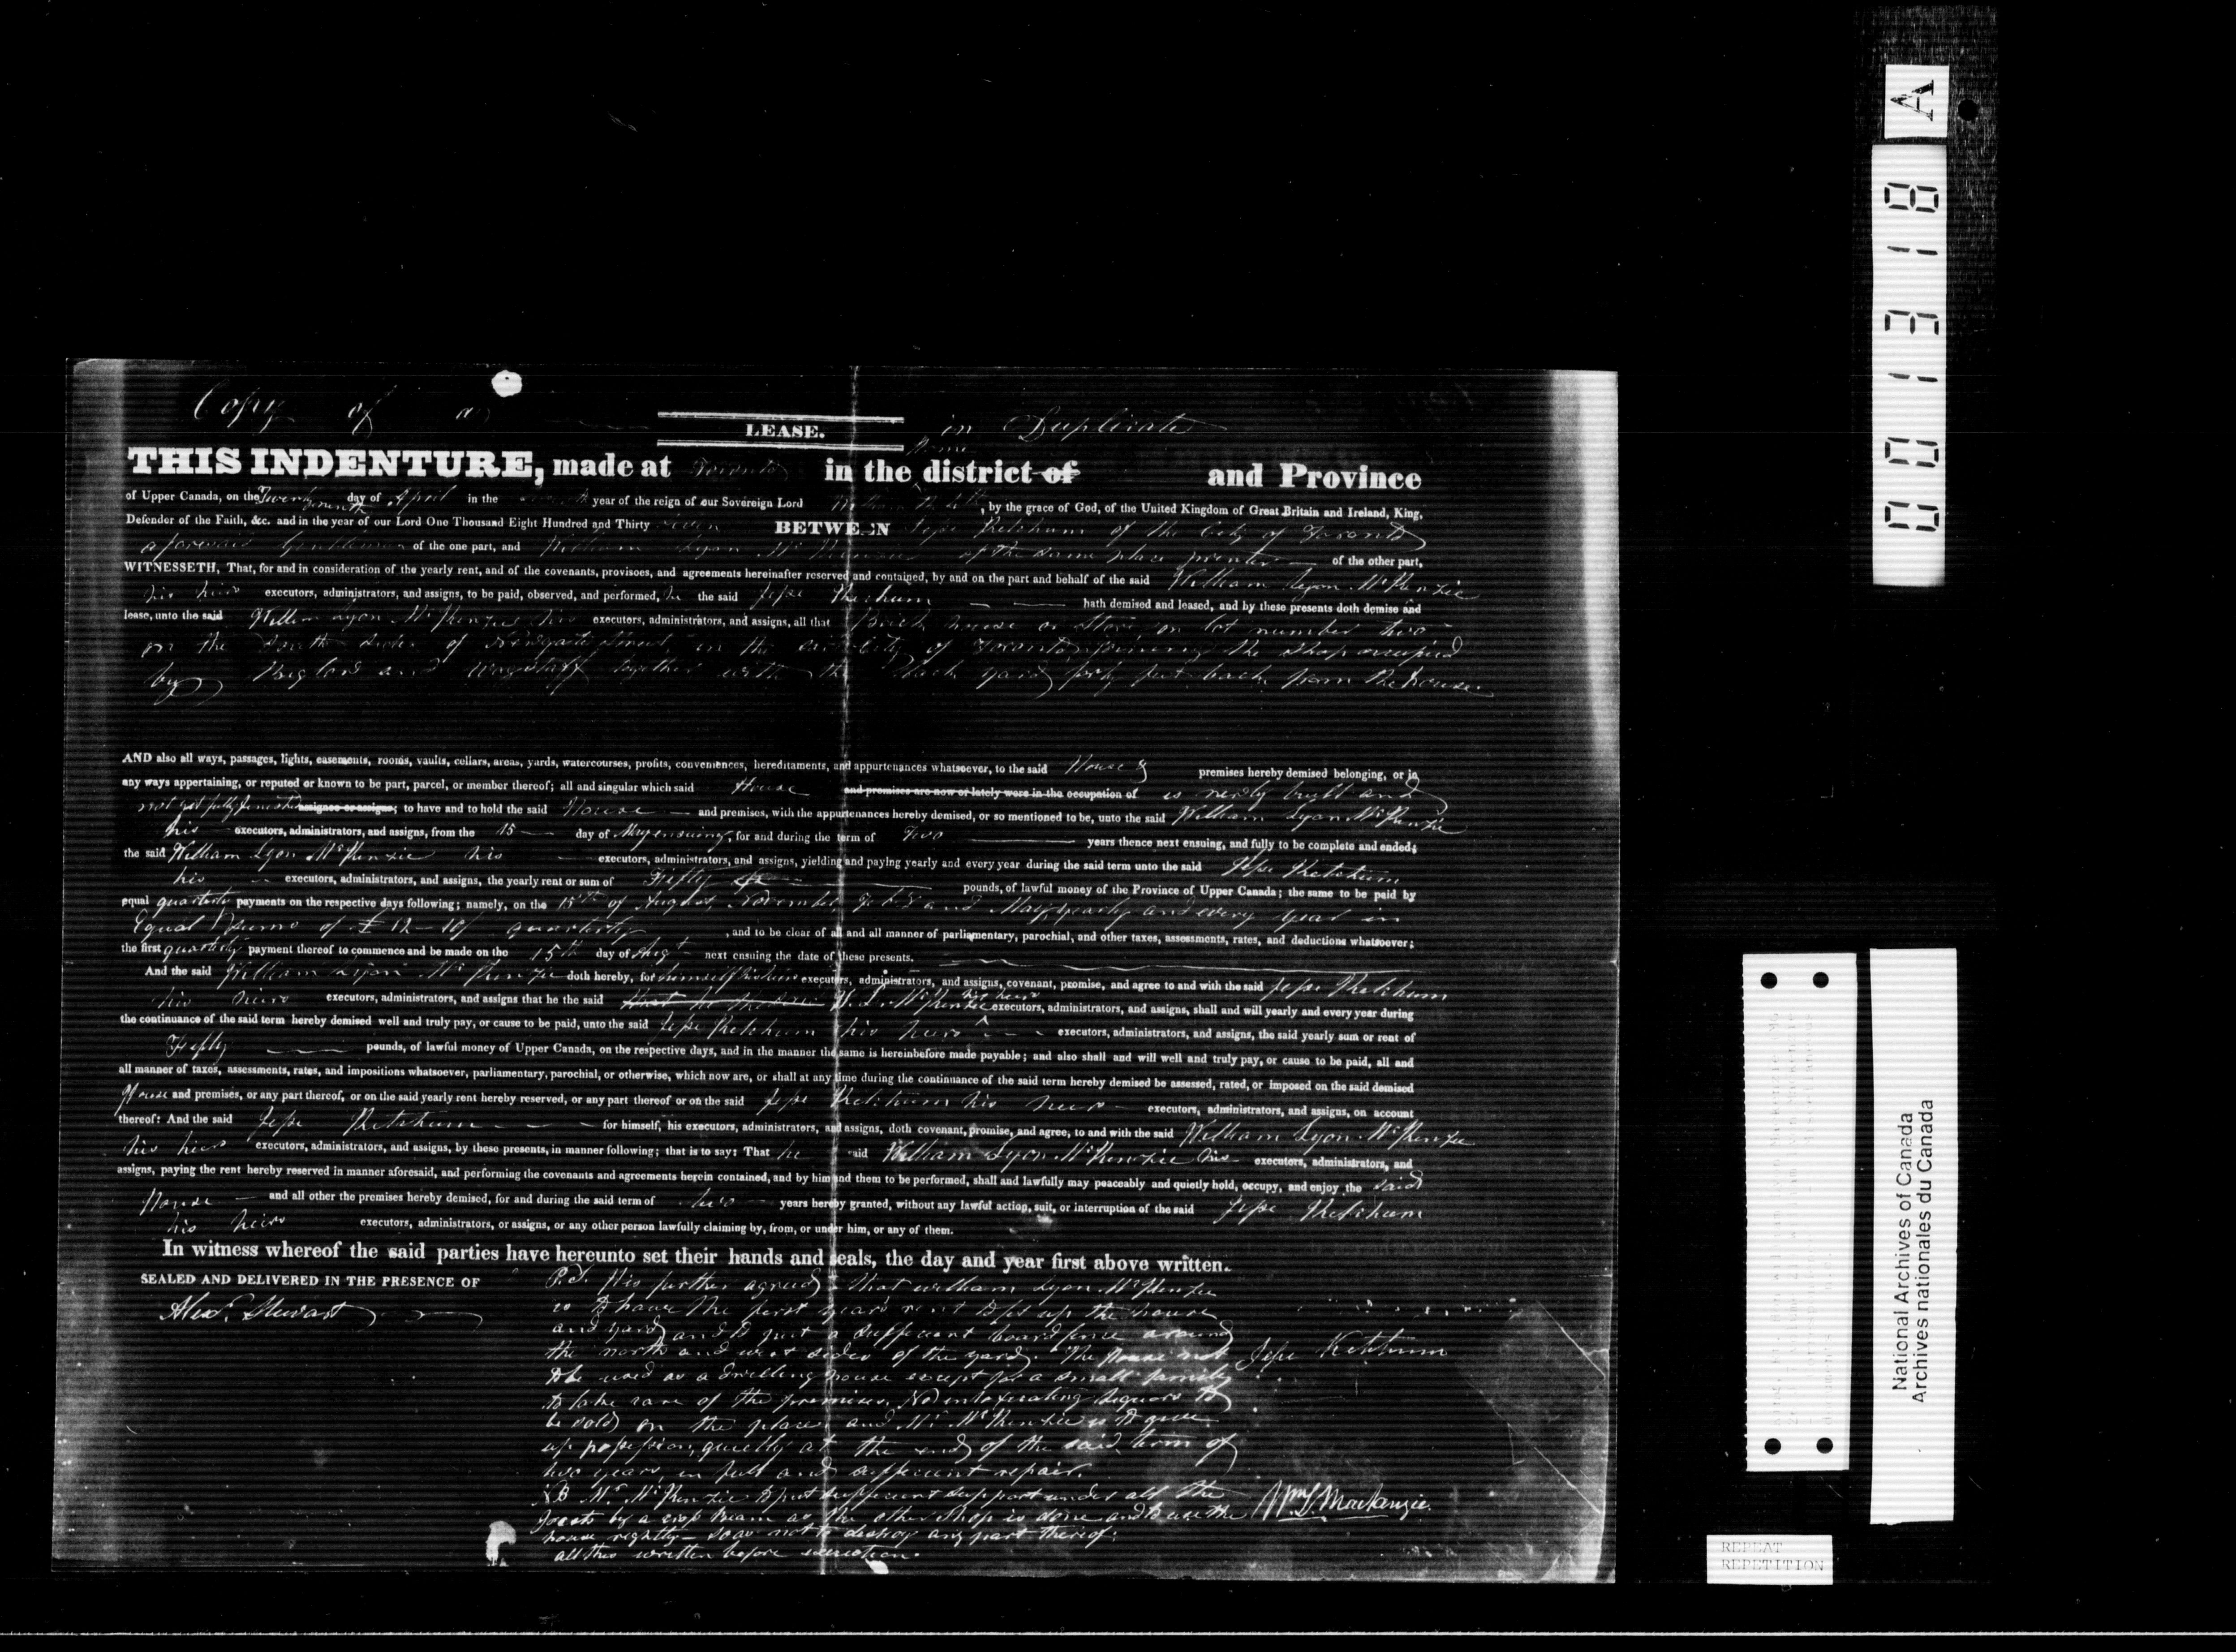 Copy of a
LEASE. in Duplicate
Home
THIS INDENTURE, made at Toronto in the district of and Province
of Upper Canada, on the Twenty seventh day of April in the seventh year of the reign of our Sovereign Lord William the 4th, by the grace of God, of the United Kingdom of Great Britain and Ireland, King,
Defender of the Faith, &c. and in the year of our Lord One Thousand Eight Hundred and Thirty Seven BETWEEN Jesse Ketchum of the City of Toronto
aforesaid Gentleman of the one part, and William Lyon McKenzie of the same place printer of the other part,
WITNESSETH, That, for and in consideration of the yearly rent, and of the covenants, provisoes, and agreements hereinafter reserved and contained, by and on the part and behalf of the said William Lyon McKenzie
his heirs executors, administrators, and assigns, to be paid, observed, and performed, he the said Jesse Ketchum hath demised and leased, and by these presents doth demise and
lease, unto the said William Lyon McKenzie his executors, administrators, and assigns, all that Brick house or Store on lot number two
on the South side of Newgate Street in the said City of Toronto joining the shop occupied
by and Wagstaff together with the back yard forty feet back from the house.
AND also all ways, passages, lights, easements, rooms, vaults, cellars, areas, yards, watercourses, profits, conveniences, hereditaments, and appurtenances whatsoever, to the said House & premises hereby demised belonging, or in
any ways appertaining, or reputed or known to be part, parcel, or member thereof; all and singular which said House and premises are now or lately were in the occupation of is newly built and
not yet fully finished assignee or assigns; to have and to hold the said House and premises, with the appurtenances hereby demised, or so mentioned to be, unto the said William Lyon McKenzie
his executors, administrators, and assigns, from the 15 day of May ensuing, for and during the term of Two years thence next ensuing, and fully to be complete and ended;
the said William Lyon McKenzie his executors, administrators, and assigns, yielding and paying yearly and every year during the said term unto the said Jesse Ketchum
his executors, administrators, and assigns, the yearly rent or sum of Fifty pounds, of lawful money of the Province of Upper Canada; the same to be paid by
equal quarterly payments on the respective days following; namely, on the 15th of August, November, Feb and May yearly and every year in
Equal Sums of £12-10/ quarterly, and to be clear of all and all manner of parliamentary, parochial, and other taxes, assessments, rates, and deductions whatsoever;
the first quarterly payment thereof to commence and be made on the 15th day of Augt next ensuing the date of these presents.
And the said William Lyon McKenzie doth hereby, for himself his heirs executors, administrators, and assigns, covenant, promise, and agree to and with the said Jesse Ketchum
his heirs executors, administrators, and assigns that he the said that he the said W. L. McKenzie his heirs executors, administrators, and assigns, shall and will yearly and every year during
the continuance of the said term hereby demised well and truly pay, or cause to be paid, unto the said Jesse Ketchum his heirs executors, administrators, and assigns, the said yearly sum or rent of
Fifty pounds, of lawful money of Upper Canada, on the respective days, and in the manner the same is hereinbefore made payable; and also shall and will well and truly pay, or cause to be paid, all and
all manner of taxes, assessments, rates, and impositions whatsoever, parliamentary, parochial, or otherwise, which now are, or shall at any time during the continuance of the said term hereby demised be assessed, rated, or imposed on the said demised
House and premises, or any part thereof, or on the said yearly rent hereby reserved, or any part thereof or on the said Jesse Ketchum his heirs executors, administrators, and assigns, on account
thereof: And the said Jesse Ketchum for himself, his executors, administrators, and assigns, doth covenant, promise, and agree, to and with the said William Lyon McKenzie
his heirs executors, administrators, and assigns, by these presents, in manner following; that is to say: That he said William Lyon McKenzie his executors, administrators, and
assigns, paying the rent hereby reserved in manner aforesaid, and performing the covenants and agreements herein contained, and by him and them to be performed, shall and lawfully may peaceably and quietly hold, occupy, and enjoy the said
House and all other the premises hereby demised, for and during the said term of two years hereby granted, without any lawful action, suit, or interruption of the said Jesse Ketchum
his heirs executors, administrators, or assigns, or any other person lawfully claiming by, from, or under him, or any of them.
In witness whereof the said parties have hereunto set their hands and seals, the day and year first above written.
SEALED AND DELIVERED IN THE PRESENCE OF
Alexr. Stewart
P.S. It is further agreed that William Lyon McKenzie
is to have the first years rent to fit up the house
and yard and to put a sufficient board fence around
the north and west sides of the yard. The house not
to be used as a dwelling house except for a small family
to take care of the premises. No intoxicating liquors to
be sold on the place and Mr. McKenzie is to give
up possession quietly at the end of the said term of
two years, in full and sufficient repair.
NB Mr. McKenzie to put sufficient support under all the
Joists by a cross beam as the other Shop is done and to use the
house rightly - so as not to destroy any part thereof.
all this written before execution.
Jesse Ketchum
Wm L Mackenzie.
A
001318
National Archives of Canada
Archives nationales du Canada
REPEAT
REPETITION